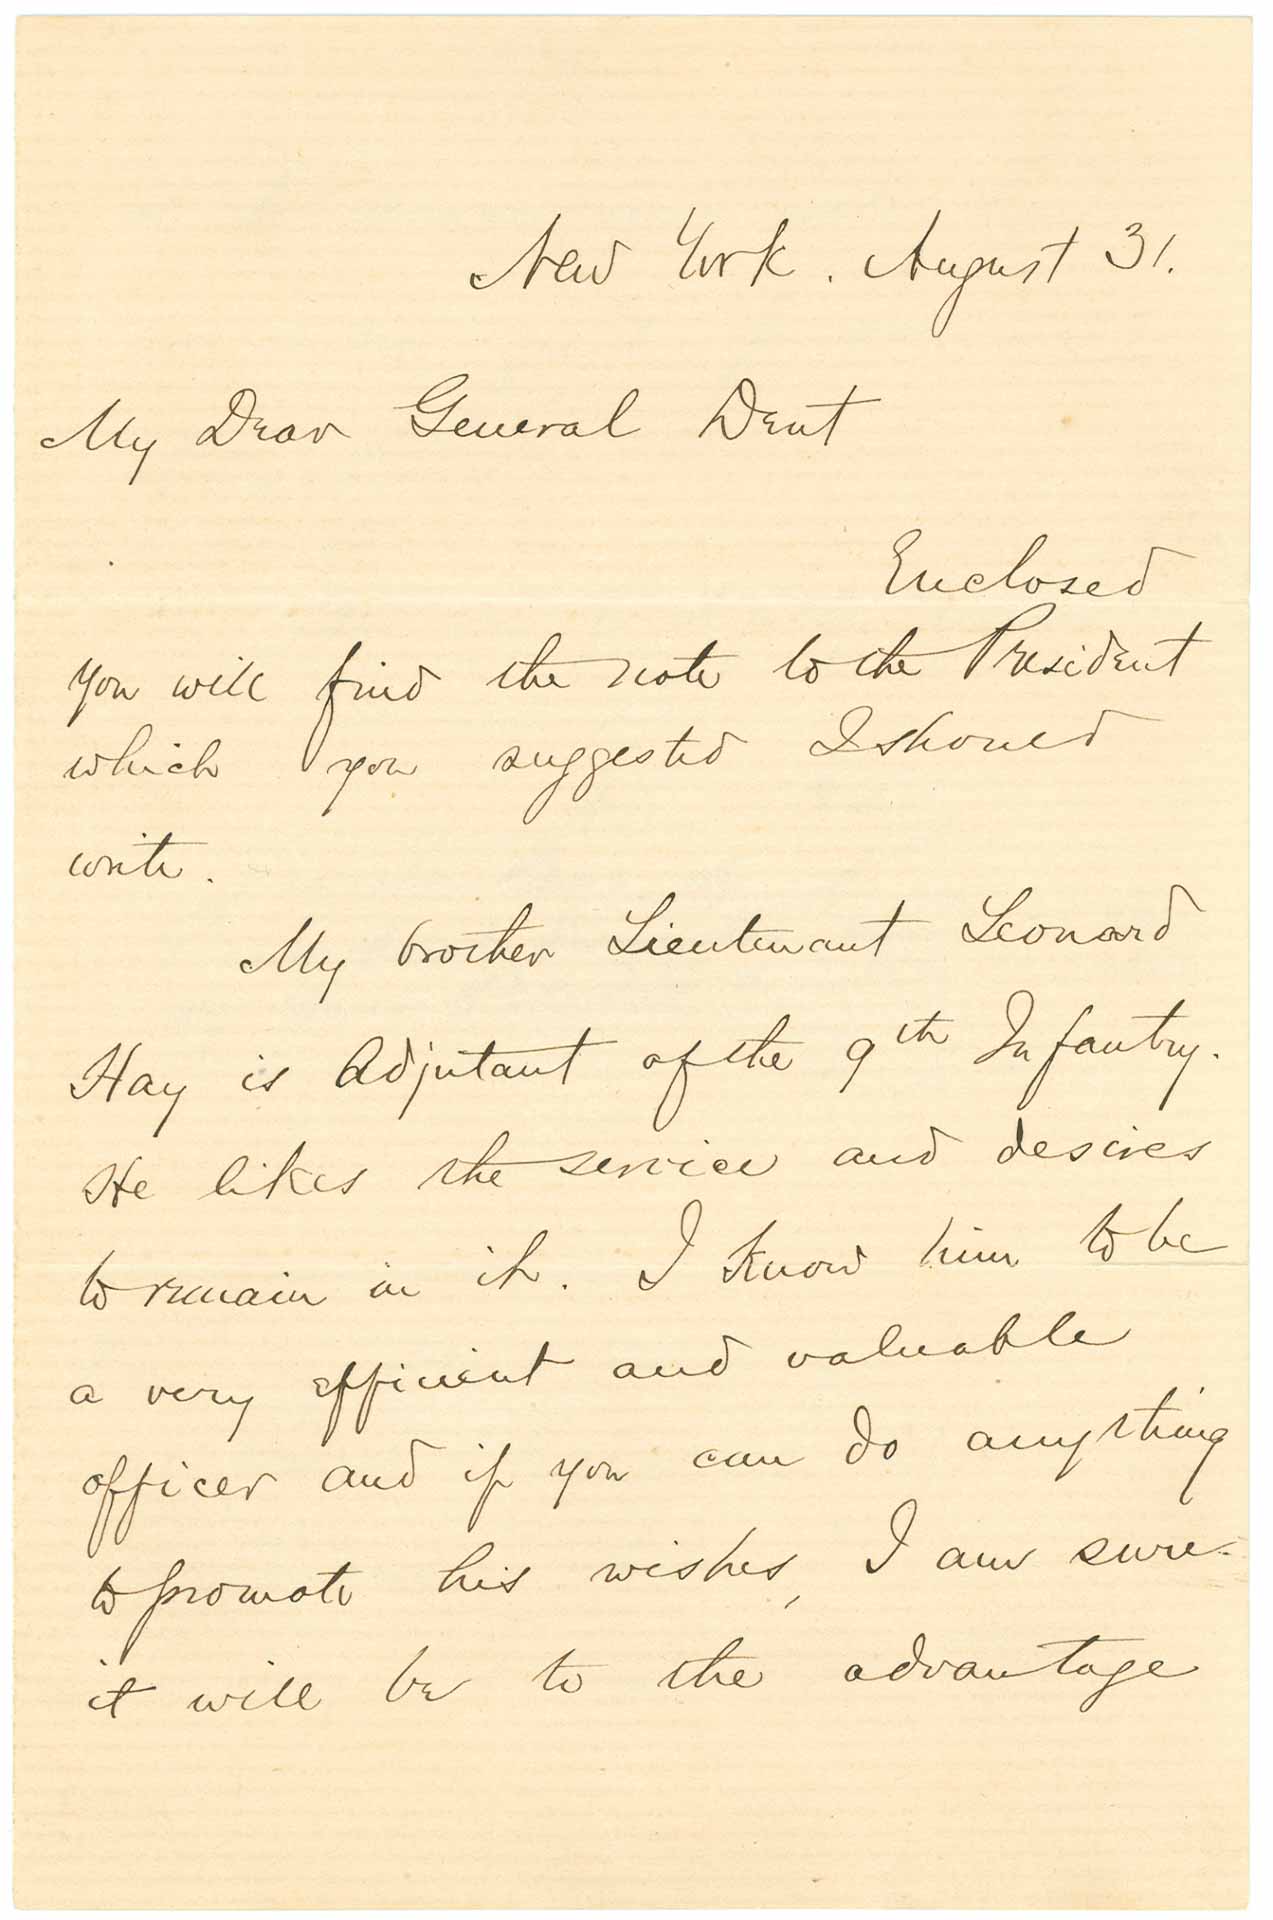 New York. August 31.
My Dear General Dent
Enclosed
you will find the note to the President
which you suggested I should
write.
My brother Lieutenant Leonard
Hay is Adjutant of the 9th Infantry.
He likes the service and desires
to remain in it. I know him to be
a very efficient and valuable
officer and if you can do anything
to promote his wishes, I am sure
it will be to the advantage